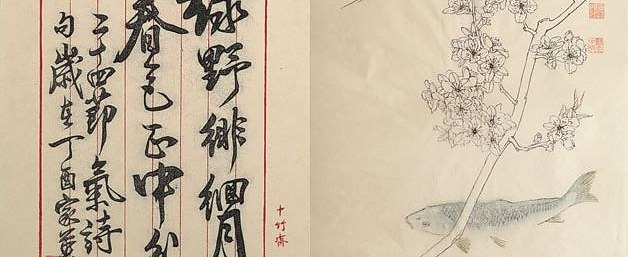 綠野徘徊月
春色正中分
二十四節氣詩
句歲在丁酉家
十竹齋